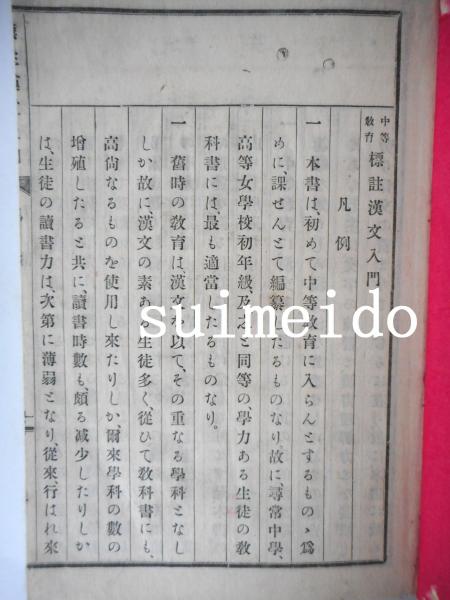 中等教育 標註漢文入門
凡例
一 本書は、初めて中等教育に入らんとするものゝ爲
めに、課せんとて編纂したるものなり、故に、尋常中學、
高等女學校初年級、及之と同等の、學力ある生徒の教
科書には、最も適當したるものなり。
一 舊時の教育は、漢文を以て、その重なる學科となし
しか故に漢文の素ある生徒多く、從ひて教科書にも、
高尚なるものを使用し來たりしか、爾來學科の數の
増殖したると共に、讀書時數も、頗る减少したりしか
は、生徒の讀書力は、次第に薄弱となり、從來、行はれ來
suimeido